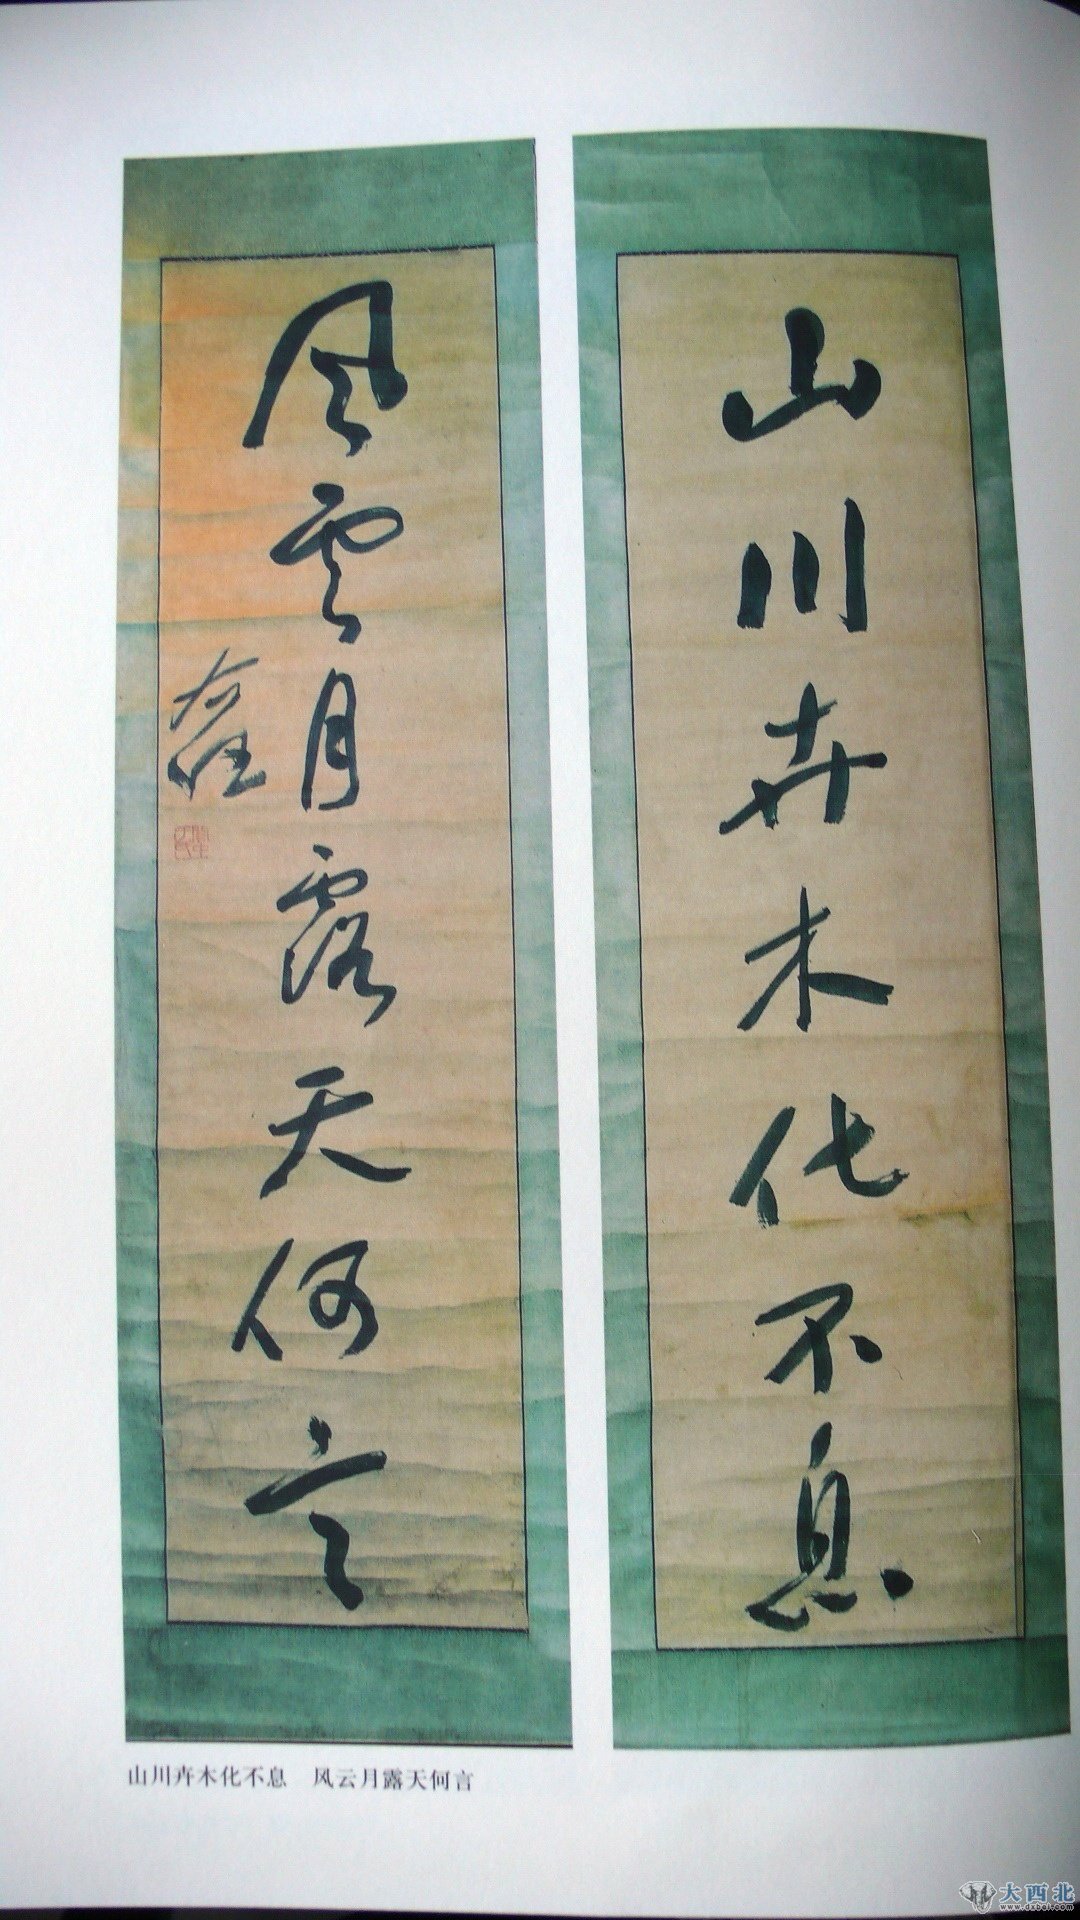 山川卉木化不息
风雲月露天何言
右任
山川卉木化不息 风云月露天何言
大西北
www.dxbei.com